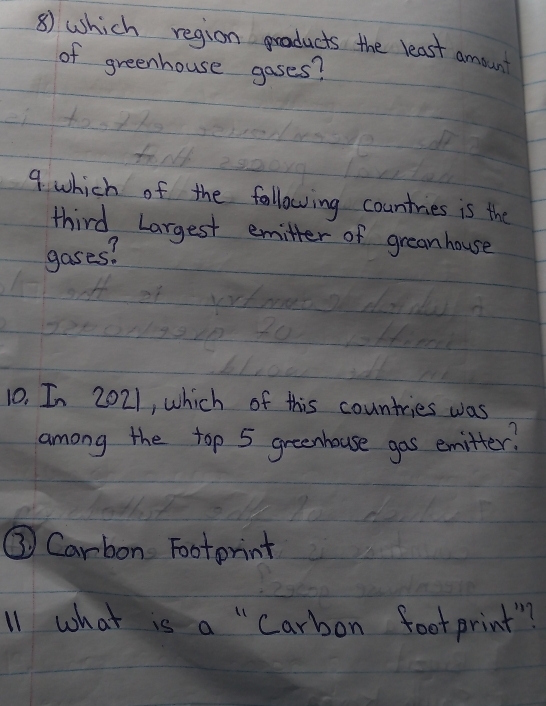 8) which region products the least amount
of greenhouse gases?
9. which of the following countries is the
third Largest emitter of greanhouse
gases?
10. In 2021, which of this countries was
among the top 5 greenhouse gas emitter?
③ Carbon Footprint
11 what is a "Carbon footprint"?